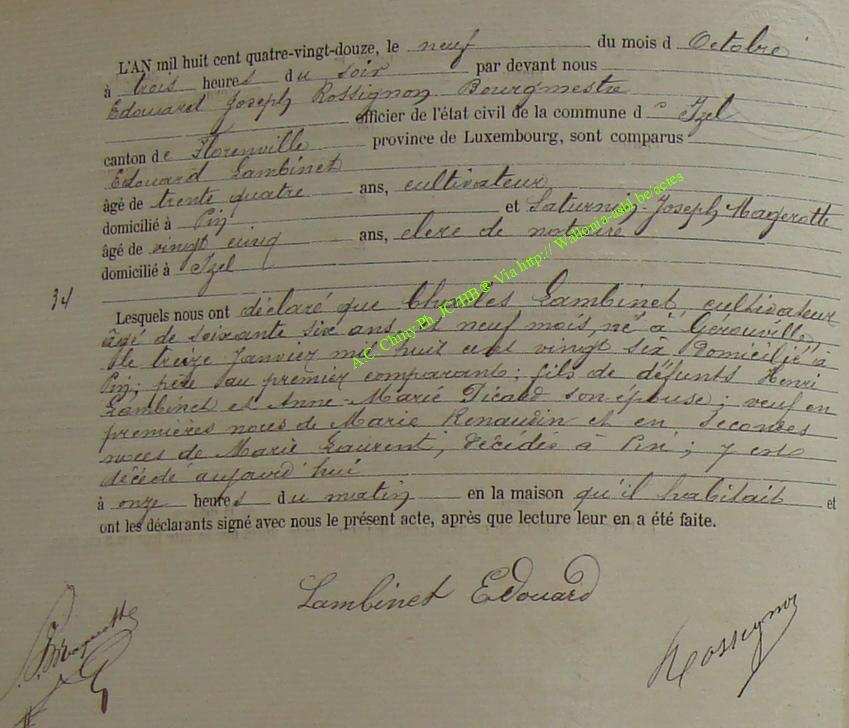 L'AN mil huit cent quatre-vingt-douze, le neuf du mois d Octobre
à trois heures du soir par devant nous
Edouard Joseph Rossignon Bourgmestre
officier de l'état civil de la commune d' Izel
canton de Florenville province de Luxembourg, sont comparus
Edouard Lambinet
âgé de trente quatre ans, cultivateur
domicilié à Pin et Saturnin-Joseph Magerotte
âgé de vingt cinq ans, clerc de notaire
domicilié à Izel
34
Lesquels nous ont déclaré que Charles Lambinet, cultivateur,
âgé de soixante six ans et neuf mois, né à Gérouville,
le treize Janvier mil huit cent vingt six, domicilié à
Pin; père au premier comparants; fils de défunts Henri
Lambinet et Anne-Marie Dicard son épouse; veuf en
premières noces de Marie Renaudin et en secondes
noces de Marie Laurent, décédés à Pin; y est
décédé aujourd'hui
à onze heures du matin en la maison qu'il habitait et
ont les déclarants signé avec nous le présent acte, après que lecture leur en a été faite.
Lambinet Edouard
Rossignon
A.C. Chiny Ph. JCHHB® Via http://Wallonia-asbl.be/actes